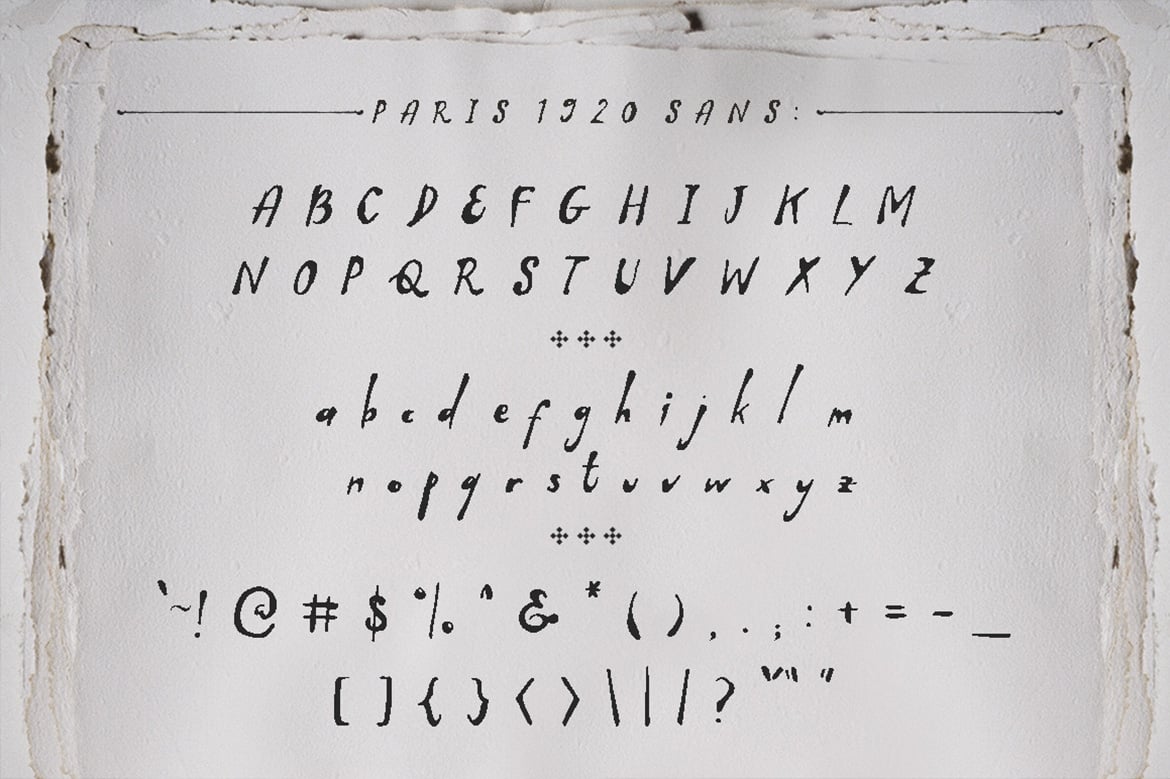 PARIS 1920 SANS:
A B C D E F G H I J K L M
N O P Q R S T U V W X Y Z
a b c d e f g h i j k l m
n o p q r s t u v w x y z
` ~ ! @ # $ % ^ & * ( ) , . ; : + = - _
[ ] { } < > \ | / ?